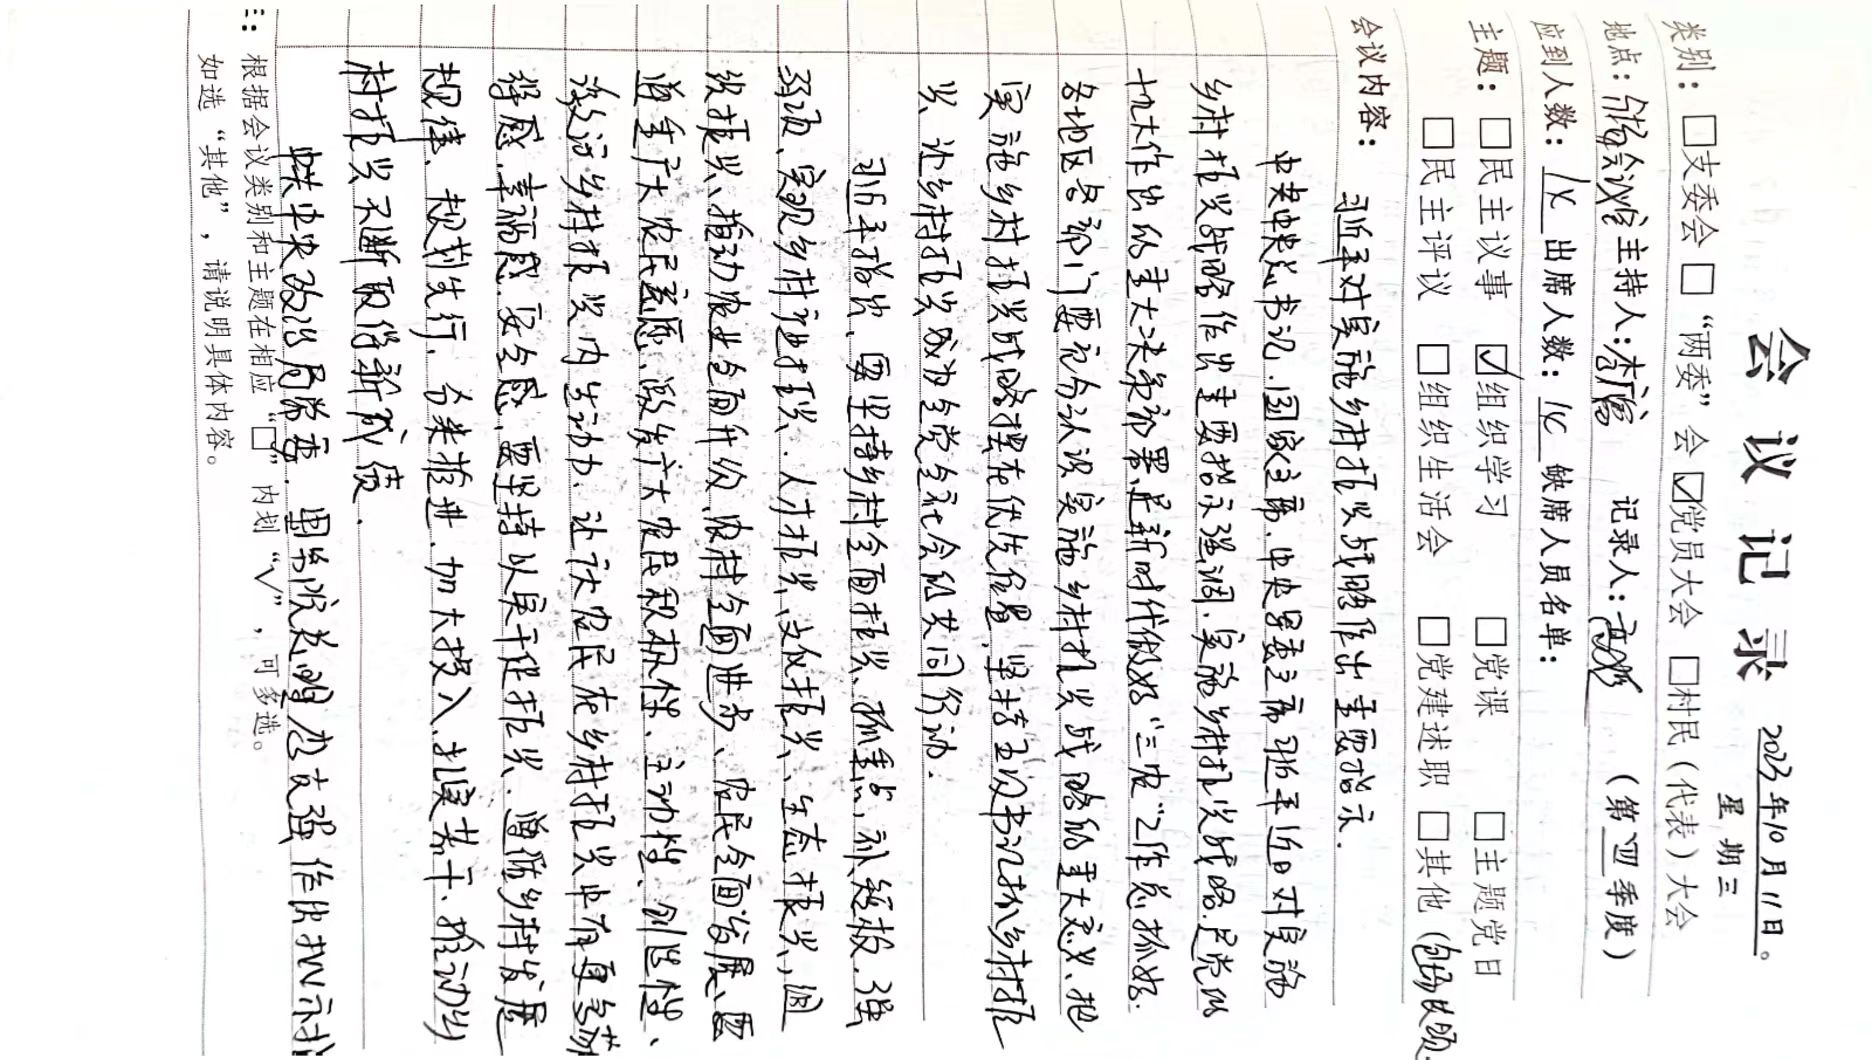 会议记录
2023年10月11日。
星期三
类别：□支委会 □“两委”会 ☑党员大会 □村民（代表）大会
地点：会议室 主持人： 记录人： （第四季度）
应到人数： 出席人数： 缺席人员名单：
主题：□民主议事 ☑组织学习 □党课 □主题党日
□民主评议 □组织生活会 □党建述职 □其他（
会议内容：
习近平对实施乡村振兴战略作出重要指示.
中央总书记.国家主席.中央军委主席习近平近日对实施
乡村振兴战略作出重要指示强调.实施乡村振兴战略.是党的
十九大作出的重大决策部署,是新时代做好“三农”工作总抓手.
各地区各部门要充分认识实施乡村振兴战略的重大意义、把
实施乡村振兴战略摆在优先位置,坚持五级书记抓乡村振
兴、让乡村振兴成为全党全社会的共同行动.
习近平指出、要坚持乡村全面振兴、抓重点,补短板.强
弱项、实现乡村产业振兴、人才振兴、文化振兴、生态振兴、组
织振兴、推动农业全面升级、农村全面进步、农民全面发展、要
尊重广大农民意愿、激发广大农民积极性、主动性、创造性、
激活乡村振兴内生动力、让广大农民在乡村振兴中有更多获
得感、幸福感、安全感,要坚持以实干促振兴、遵循乡村发展
规律、规划先行、分类推进、加大投入、扎实苦干、推动乡
村振兴不断取得新成绩.
中央政治局常委.
注：根据会议类别和主题在相应“□”内划“√”，可多选。
如选“其他”，请说明具体内容。